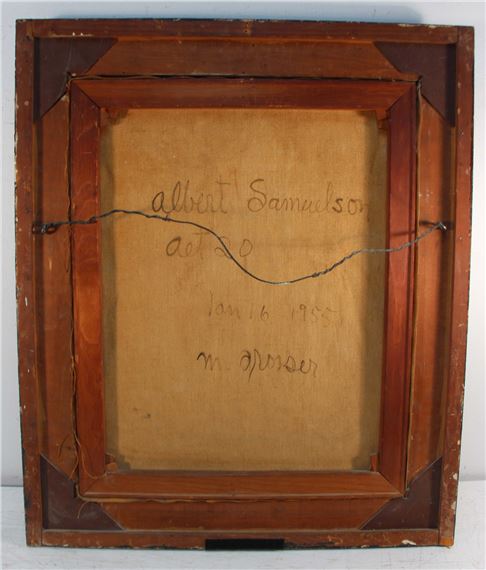 albert Samuelson
aet 20
Jan 16 1955
m grosser